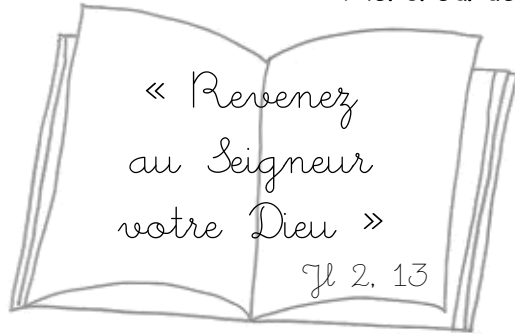 « Revenez
au Seigneur
votre Dieu »
Jl 2, 13